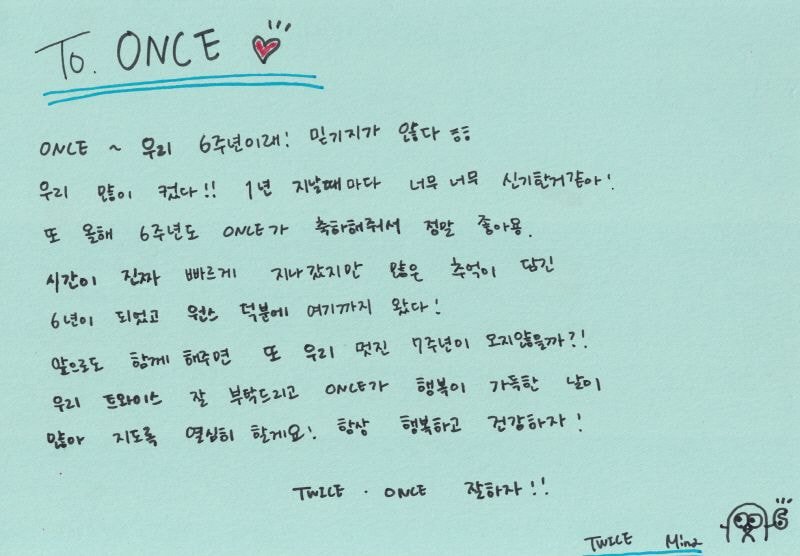 To. ONCE
ONCE ~ 우리 6주년이래! 믿기지가 않다 ㅎㅎ
우리 많이 컸다!! 1년 지날때마다 너무 너무 신기한거같아!
또 올해 6주년도 ONCE가 축하해줘서 정말 좋아용.
시간이 진짜 빠르게 지나갔지만 많은 추억이 담긴
6년이 되었고 원스 덕분에 여기까지 왔다!
앞으로도 함께 해주면 또 우리 멋진 7주년이 오지않을까?!
우리 트와이스 잘 부탁드리고 ONCE가 행복이 가득한 날이
많아 지도록 열심히 할게요! 항상 행복하고 건강하자!
TWICE · ONCE 잘하자!!
TWICE Mina 6